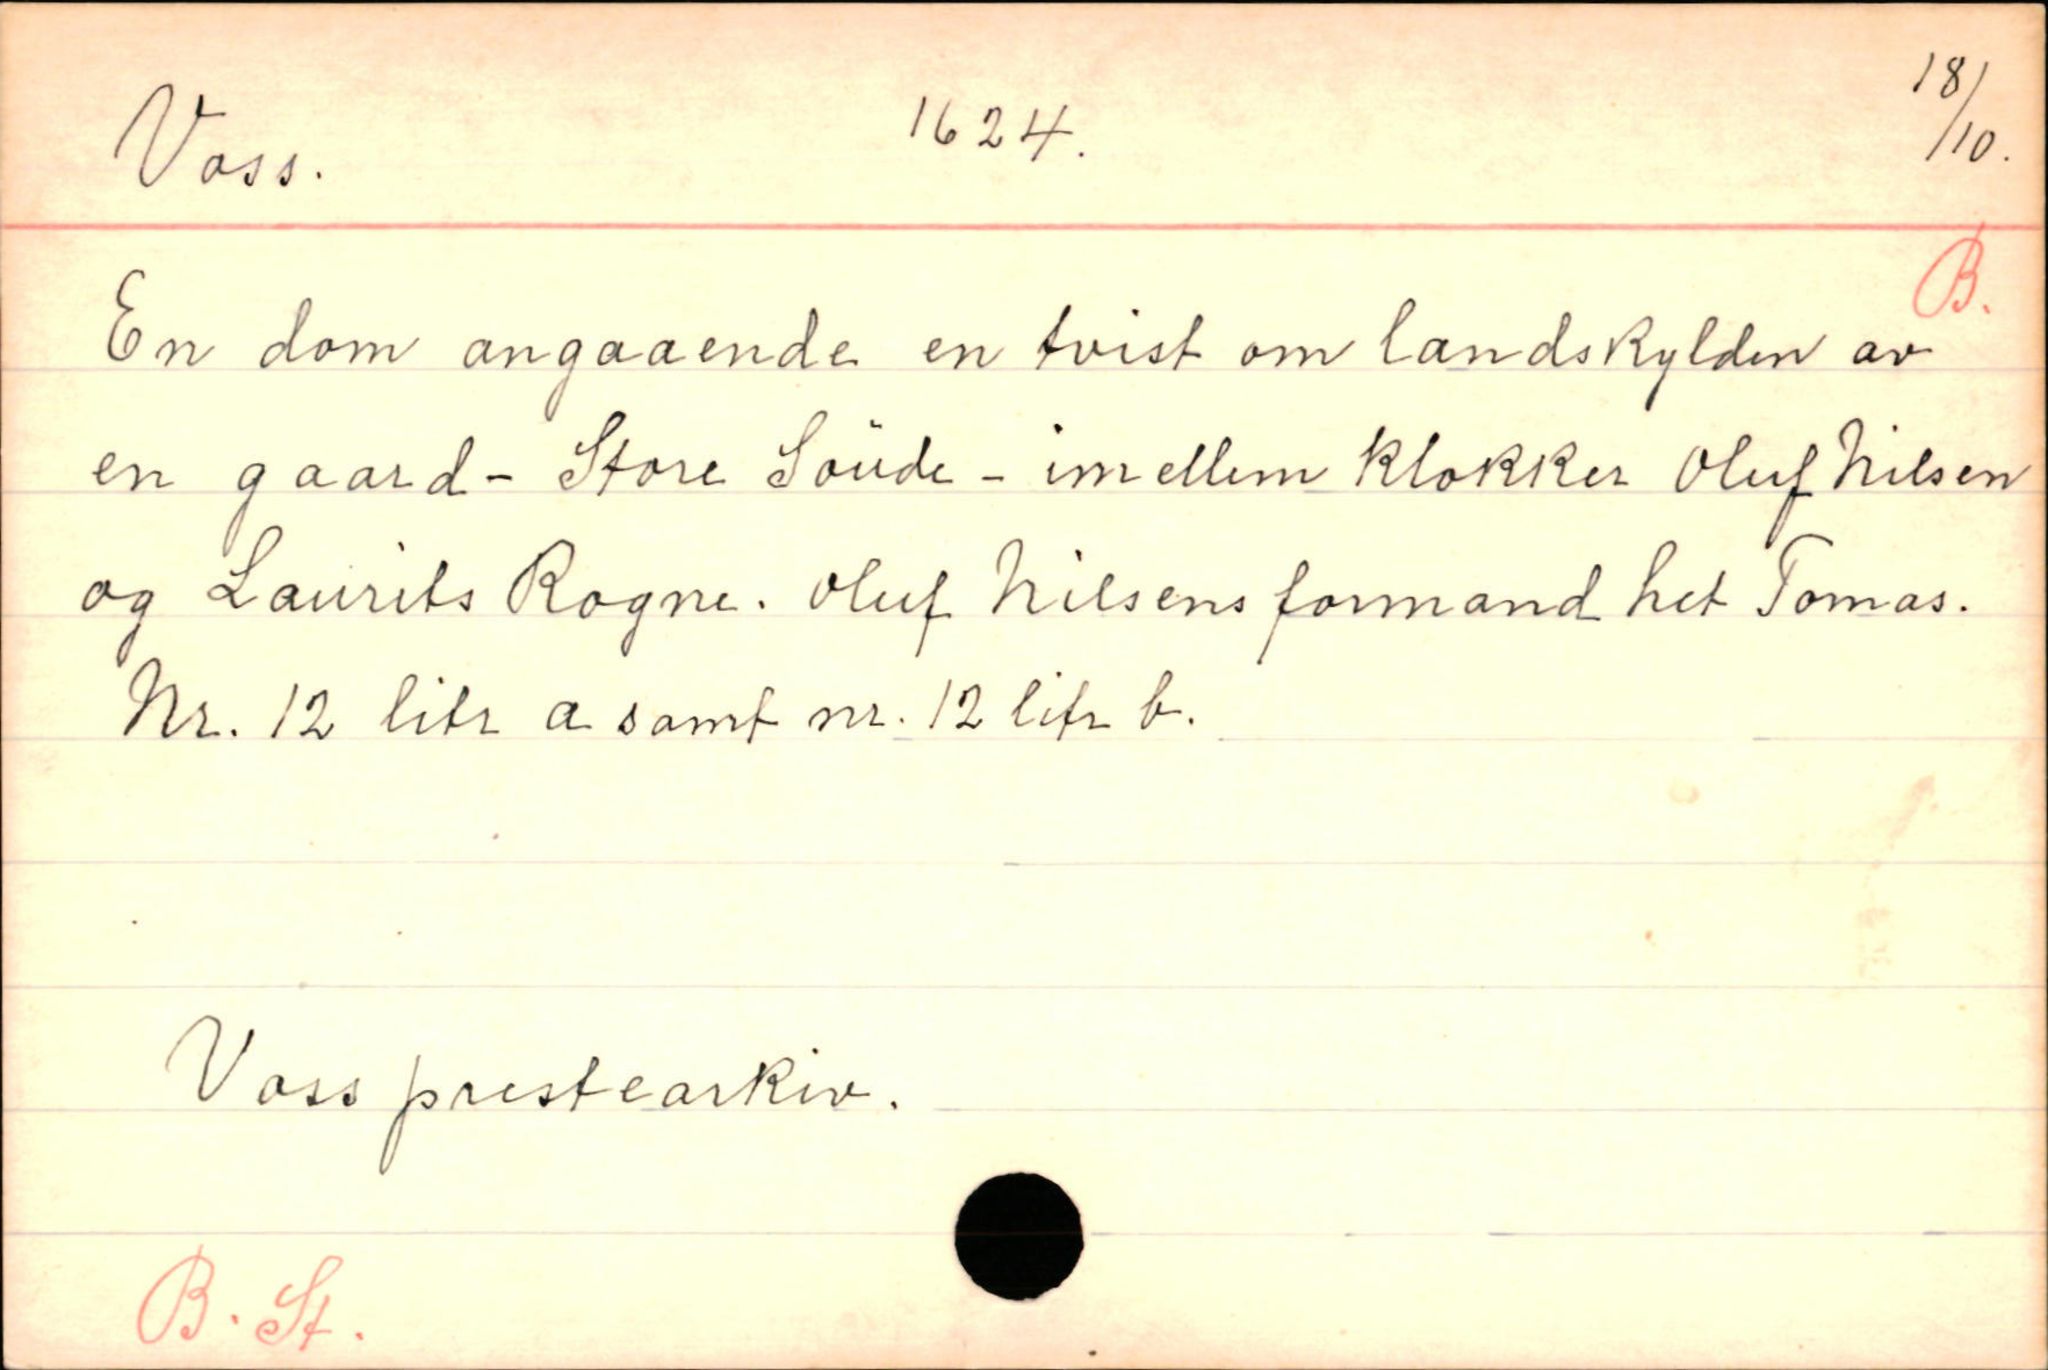 Voss. 1624. 18/10.
B.
En dom angaaende en tvist om landskylden av
en gaard - Store Söüde - imellem klokker Oluf Nilsen
og Laurits Rogne. Oluf Nilsens formand het Tomas.
Nr. 12 litr a samt nr. 12 litr b.
Voss prestearkiv.
B. St.